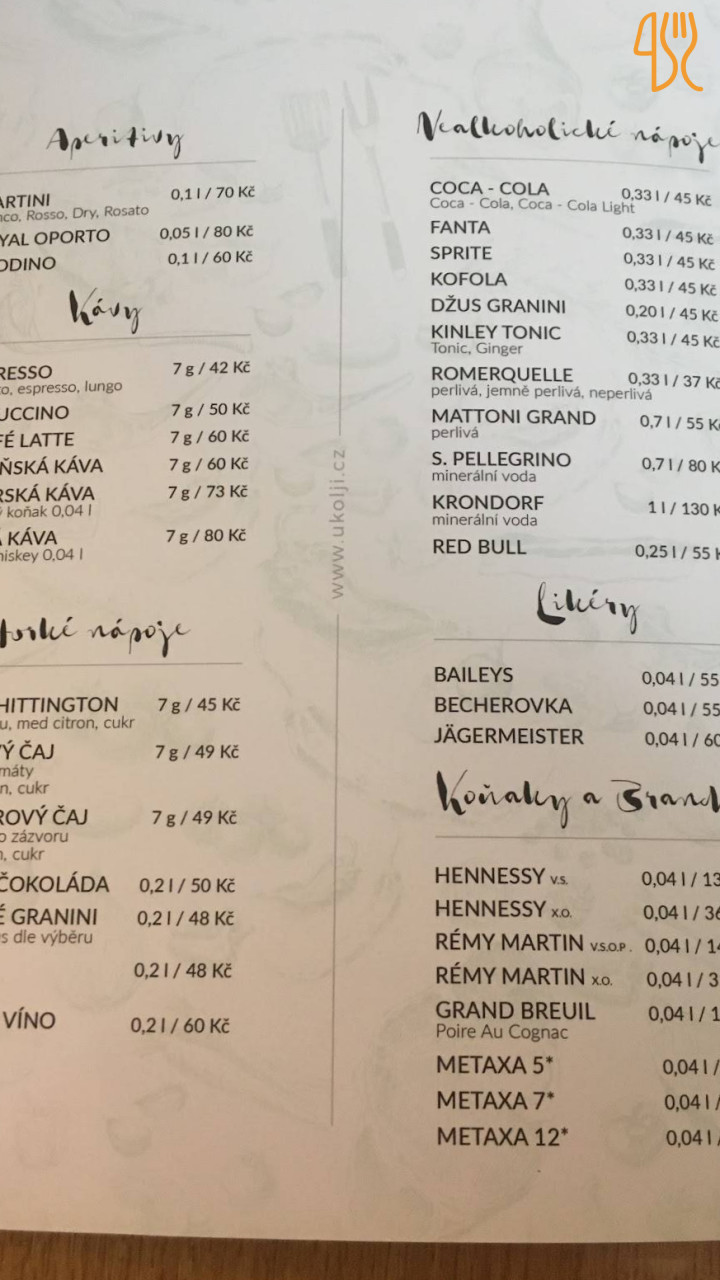 Aperitivy
ARTINI 0,1 l / 70 Kč
nco, Rosso, Dry, Rosato
YAL OPORTO 0,05 l / 80 Kč
ODINO 0,1 l / 60 Kč
Kávy
RESSO 7 g / 42 Kč
to, espresso, lungo
UCCINO 7 g / 50 Kč
FÉ LATTE 7 g / 60 Kč
ŇSKÁ KÁVA 7 g / 60 Kč
RSKÁ KÁVA 7 g / 73 Kč
ý koňak 0,04 l
KÁVA 7 g / 80 Kč
hiskey 0,04 l
orké nápoje
HITTINGTON 7 g / 45 Kč
u, med citron, cukr
Ý ČAJ 7 g / 49 Kč
máty
n, cukr
ROVÝ ČAJ 7 g / 49 Kč
o zázvoru
n, cukr
ČOKOLÁDA 0,2 l / 50 Kč
É GRANINI 0,2 l / 48 Kč
s dle výběru
0,2 l / 48 Kč
VÍNO 0,2 l / 60 Kč
www.ukolji.cz
Nealkoholické nápoje
COCA - COLA 0,33 l / 45 Kč
Coca - Cola, Coca - Cola Light
FANTA 0,33 l / 45 Kč
SPRITE 0,33 l / 45 Kč
KOFOLA 0,33 l / 45 Kč
DŽUS GRANINI 0,20 l / 45 Kč
KINLEY TONIC 0,33 l / 45 Kč
Tonic, Ginger
ROMERQUELLE 0,33 l / 37 Kč
perlivá, jemně perlivá, neperlivá
MATTONI GRAND 0,7 l / 55 K
perlivá
S. PELLEGRINO 0,7 l / 80 K
minerální voda
KRONDORF 1 l / 130 K
minerální voda
RED BULL 0,25 l / 55 K
Likéry
BAILEYS 0,04 l / 55
BECHEROVKA 0,04 l / 55
JÄGERMEISTER 0,04 l / 60
Koňaky a Brand
HENNESSY V.S. 0,04 l / 13
HENNESSY X.O. 0,04 l / 36
RÉMY MARTIN V.S.O.P. 0,04 l / 14
RÉMY MARTIN X.O. 0,04 l / 3
GRAND BREUIL 0,04 l / 1
Poire Au Cognac
METAXA 5* 0,04 l /
METAXA 7* 0,04 l /
METAXA 12* 0,04 l